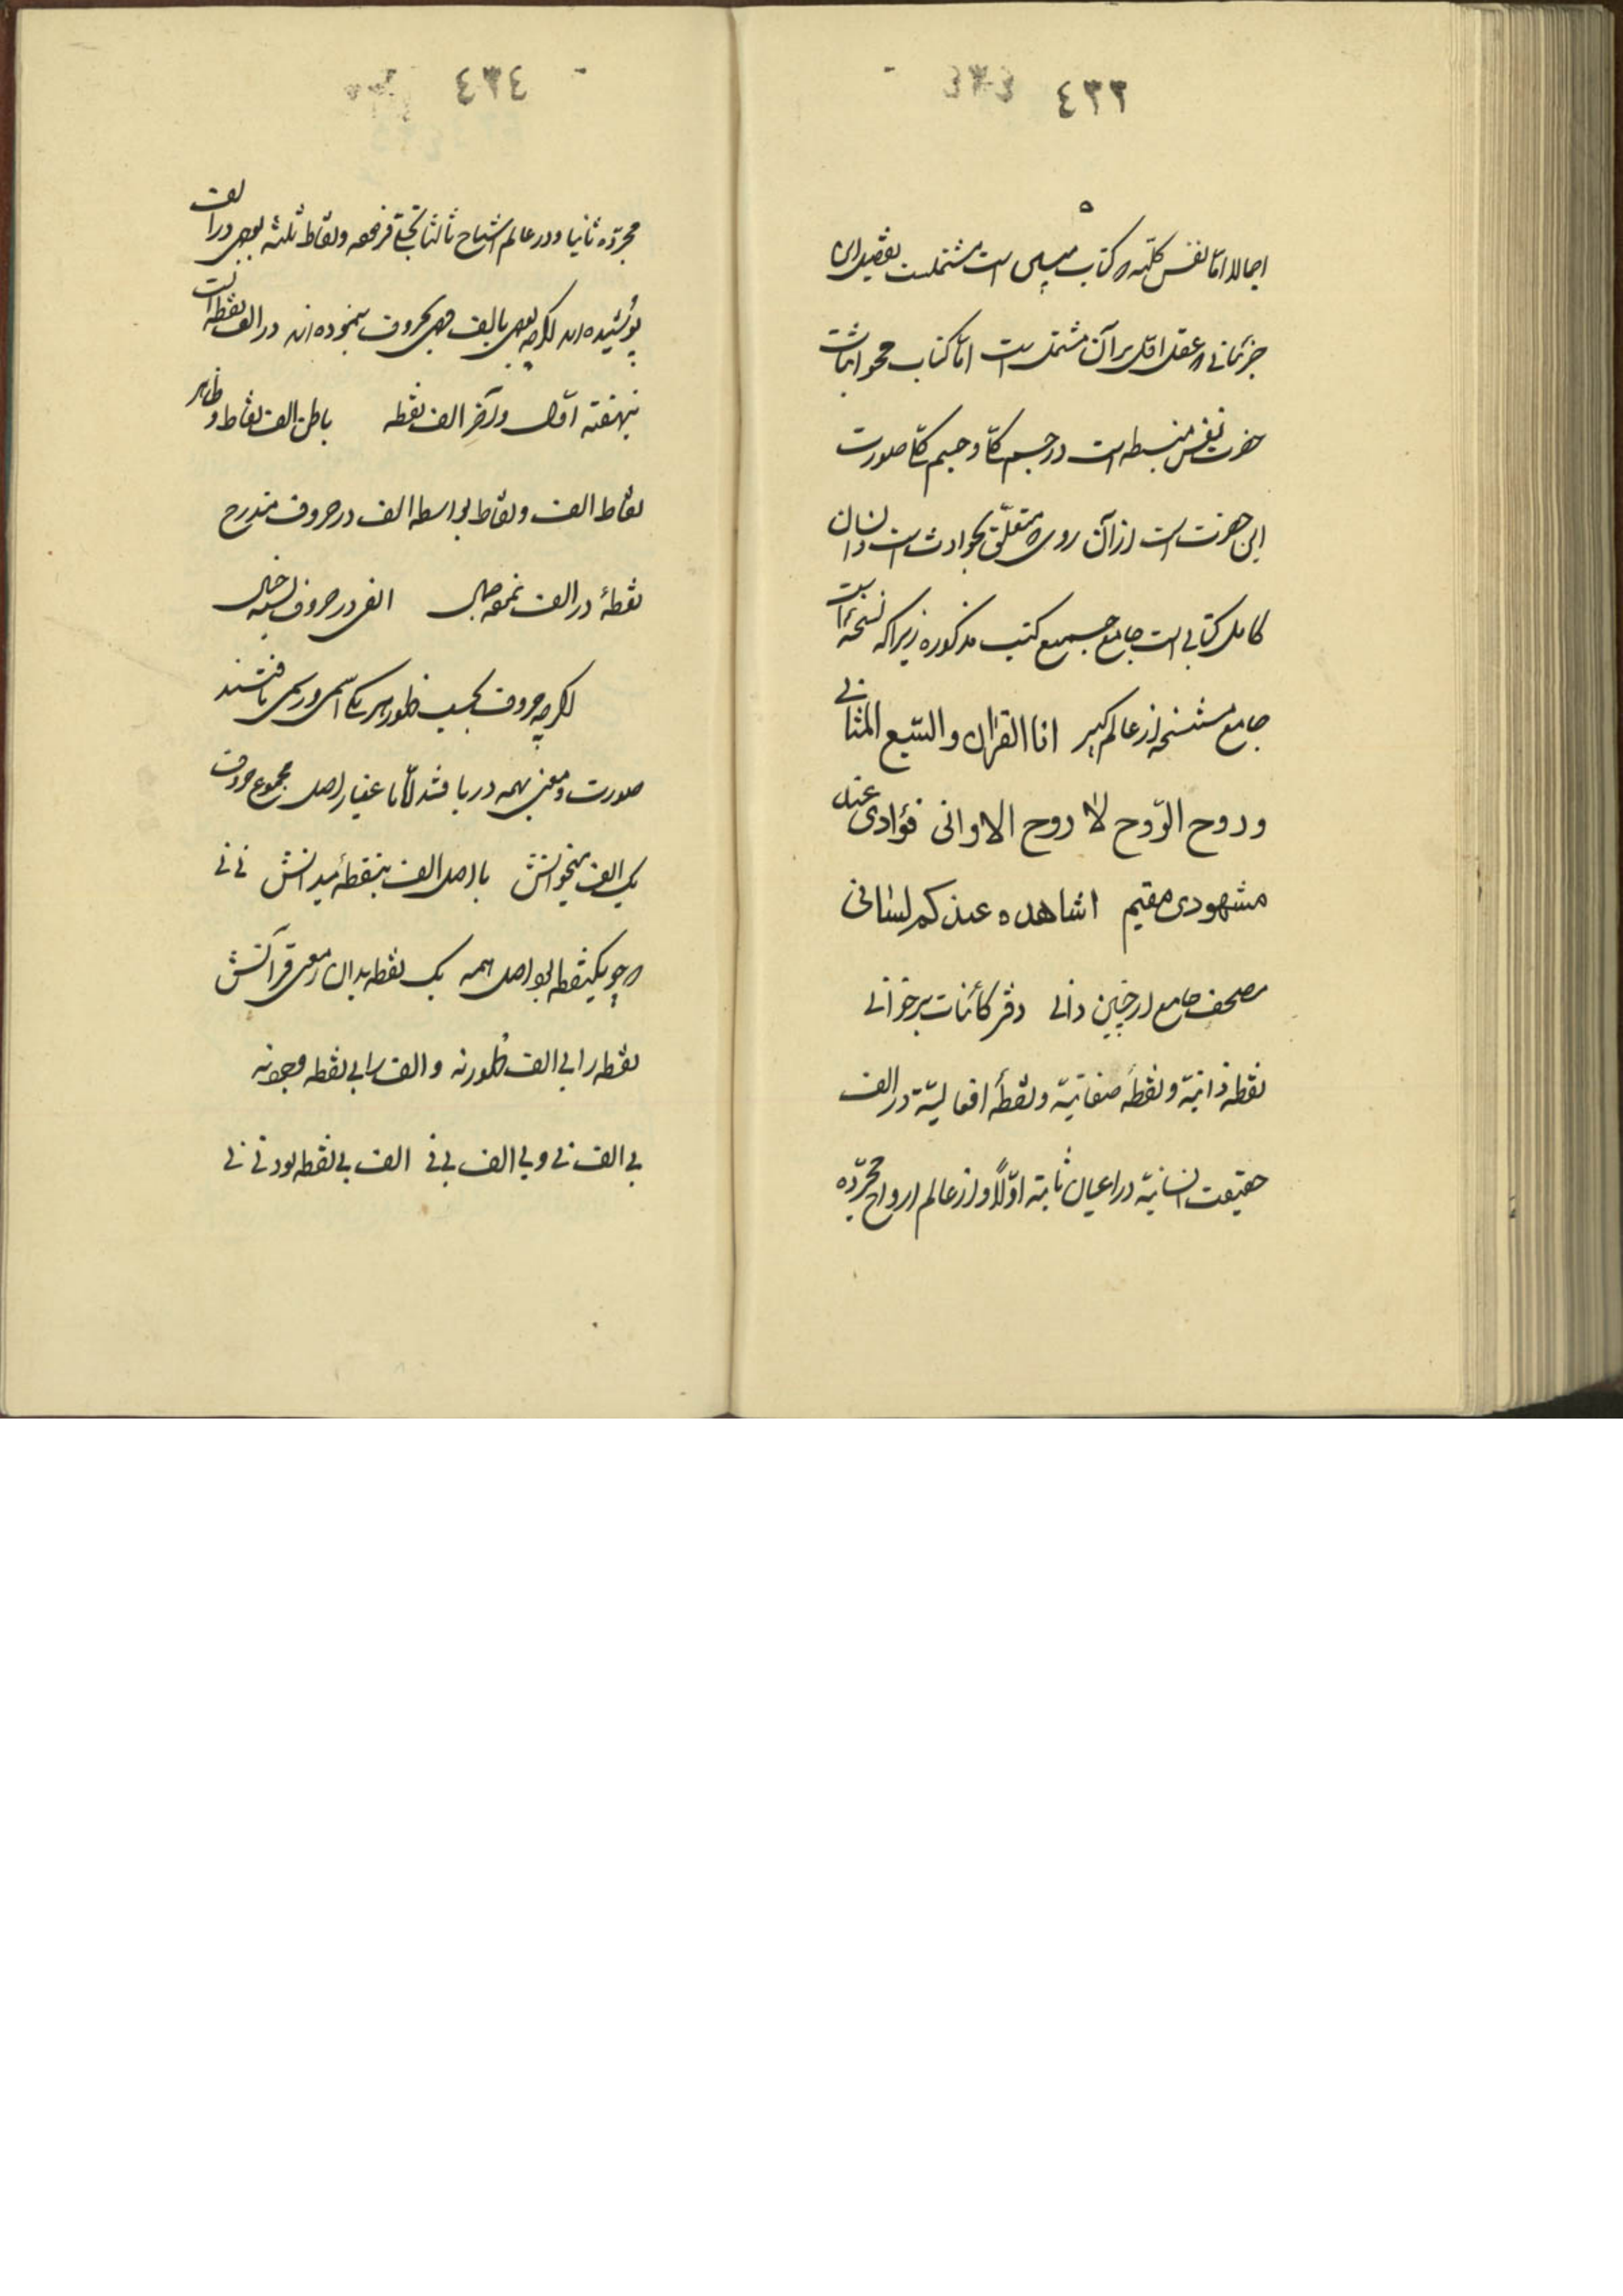 ٤٣٣
اجمالا اما نفس کلیه که کتاب مبین است مشتملست بتفصیل ان
جزئیاتی که عقل اول بر آن مشتمل است اما کتاب محو اثبات
حضرت نفس منبسطه است در جسم کل و جسم کل صورت
این حضرت است از آن روی که متعلق بحوادث است و انسان
کامل کتابی است جامع جمیع کتب مذکوره زیرا که نسخهٔ است
جامع مستنسخه از عالم کبیر انا القرآن والسبع المثانی
وروح الروح لا روح الاوانی فؤادی عند
مشهودی مقیم اشاهده عندکم لسانی
مصحف جامع ار چنین دانی دفتر کائنات بر خوانی
نقطه ذاتیه و نقطهٔ صفاتیه و نقطهٔ افعالیه در الف
حقیقت انسانیه در اعیان ثابته اولاً و از عالم ارواح مجرده
٤٣٤
مجرده ثانیا و در عالم اشباح ثالثا تجلی فرموده و نقاط ثلثه بوجهی در الف
پوشیده اند اگرچه بوجهی بالف وجهی بحروف بنموده اند در الف نقطه است
بنهفته اول و آخر الف نقطه باطن الف نقاط و ظاهر
نقاط الف و نقاط بواسطه الف در حروف مندرج
نقطهٔ در الف نموده جمال الفی در حروف بسته خیال
اگرچه حروف بحسب ظهور هر یک اسمی و رسمی یافتند
صورت و معنی همه دریافتند اما باعتبار اصل مجموع حروف
یک الف میخوانش باز اصل الف بنقطهٔ میدانش نی نی
که چو یکنقطه بود اصل همه یک نقطه بدان ز معنی قرآنش
نقطه را بی الف ظهور نه و الف را بی نقطه وجود نه
بی الف نی و بی الف بی نی الف بی نقطه بود نی نی